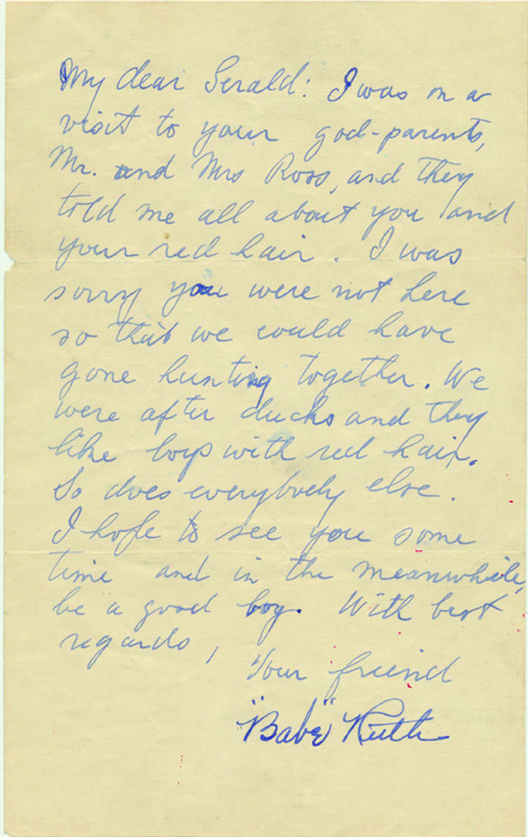 My dear Gerald: I was on a
visit to your god-parents,
Mr. and Mrs Ross, and they
told me all about you and
your red hair. I was
sorry you were not here
so that we could have
gone hunting together. We
were after ducks and they
like boys with red hair.
So does everybody else.
I hope to see you some
time and in the meanwhile,
be a good boy. With best
regards,
Your friend
"Babe" Ruth